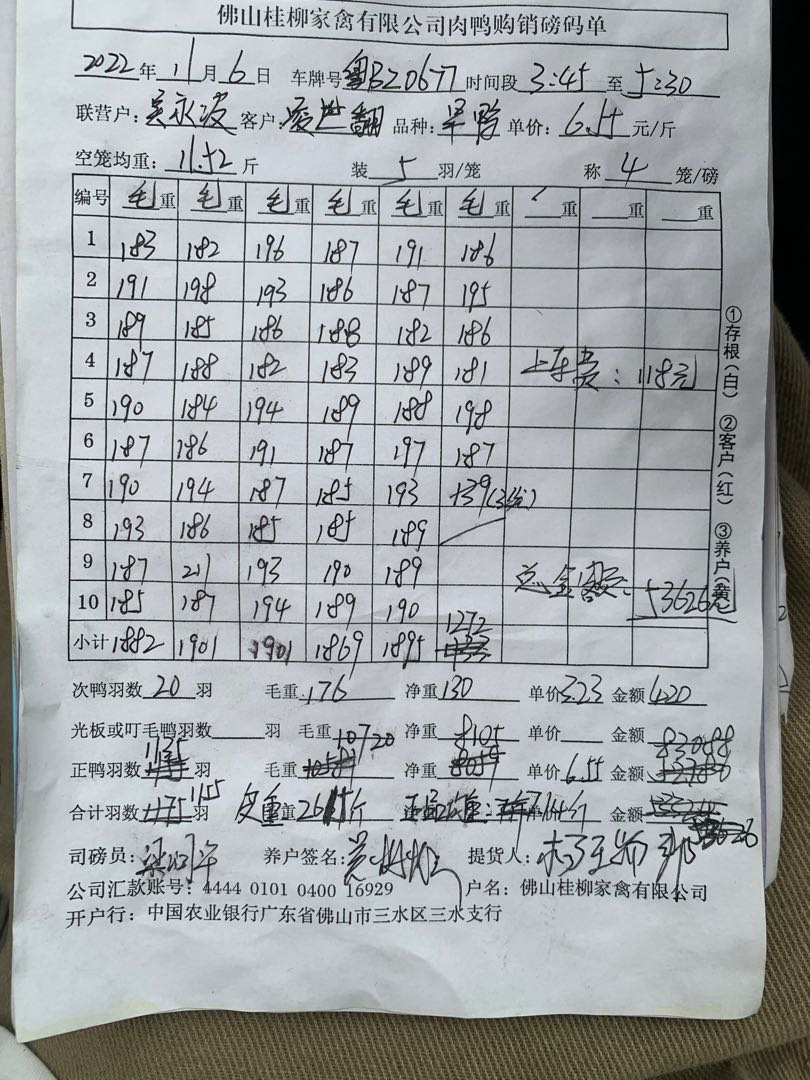 佛山桂柳家禽有限公司肉鸭购销磅码单
2022年11月6日 车牌号粤B20677时间段3:45至5:30
联营户:吴永波 客户:凌世翻 品种:旱鸭 单价:6.55元/斤
空笼均重:11.52斤 装5羽/笼 称4笼/磅
编号 毛重 毛重 毛重 毛重 毛重 毛重 重 重 重
1 183 182 196 187 191 186
2 191 198 193 186 187 195
3 189 185 186 188 182 186
4 187 188 182 183 189 181 上车费:118元
5 190 184 194 189 188 198
6 187 186 191 187 197 187
7 190 194 187 185 193 +39
8 193 186 185 185 189
9 187 211 193 190 189 总金额:
10 185 187 194 189 190 53626元
小计 1882 1901 1901 1869 1895 1272
次鸭羽数20羽 毛重176 净重130 单价3.23 金额420
光板或叮毛鸭羽数 羽 毛重 净重 单价 金额
正鸭羽数1135羽 毛重10720 净重8105 单价6.55 金额53088
合计羽数1155羽 皮重 2615斤 单价 金额
司磅员: 养户签名: 提货人:
公司汇款账号:4444 0101 0400 16929 户名:佛山桂柳家禽有限公司
开户行:中国农业银行广东省佛山市三水区三水支行
①存根(白) ②客户(红) ③养户(黄)